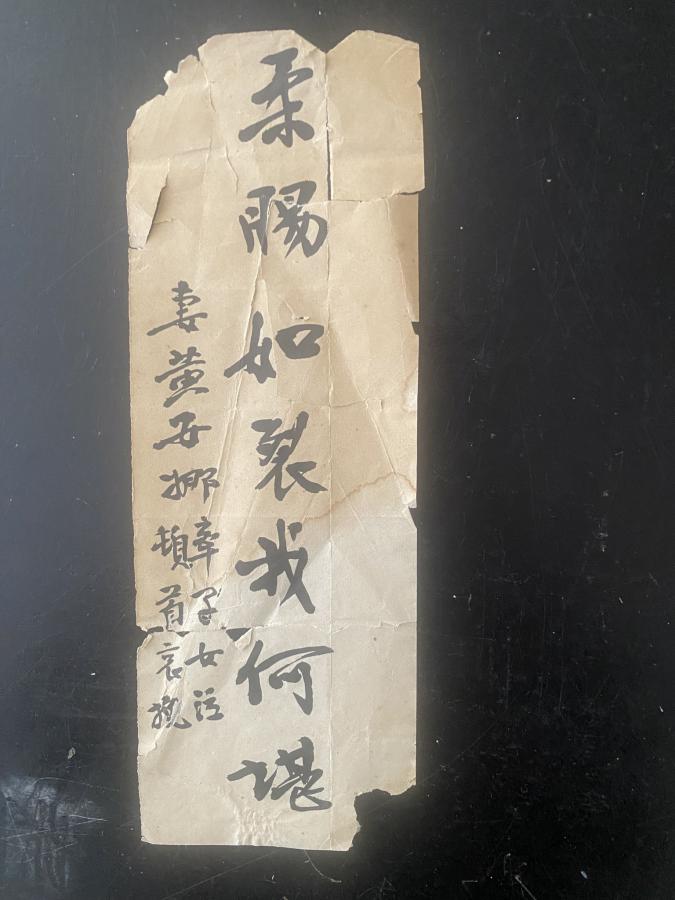 柔腸如裂我何堪
妻黄挪
率子女泣
頓首哀挽